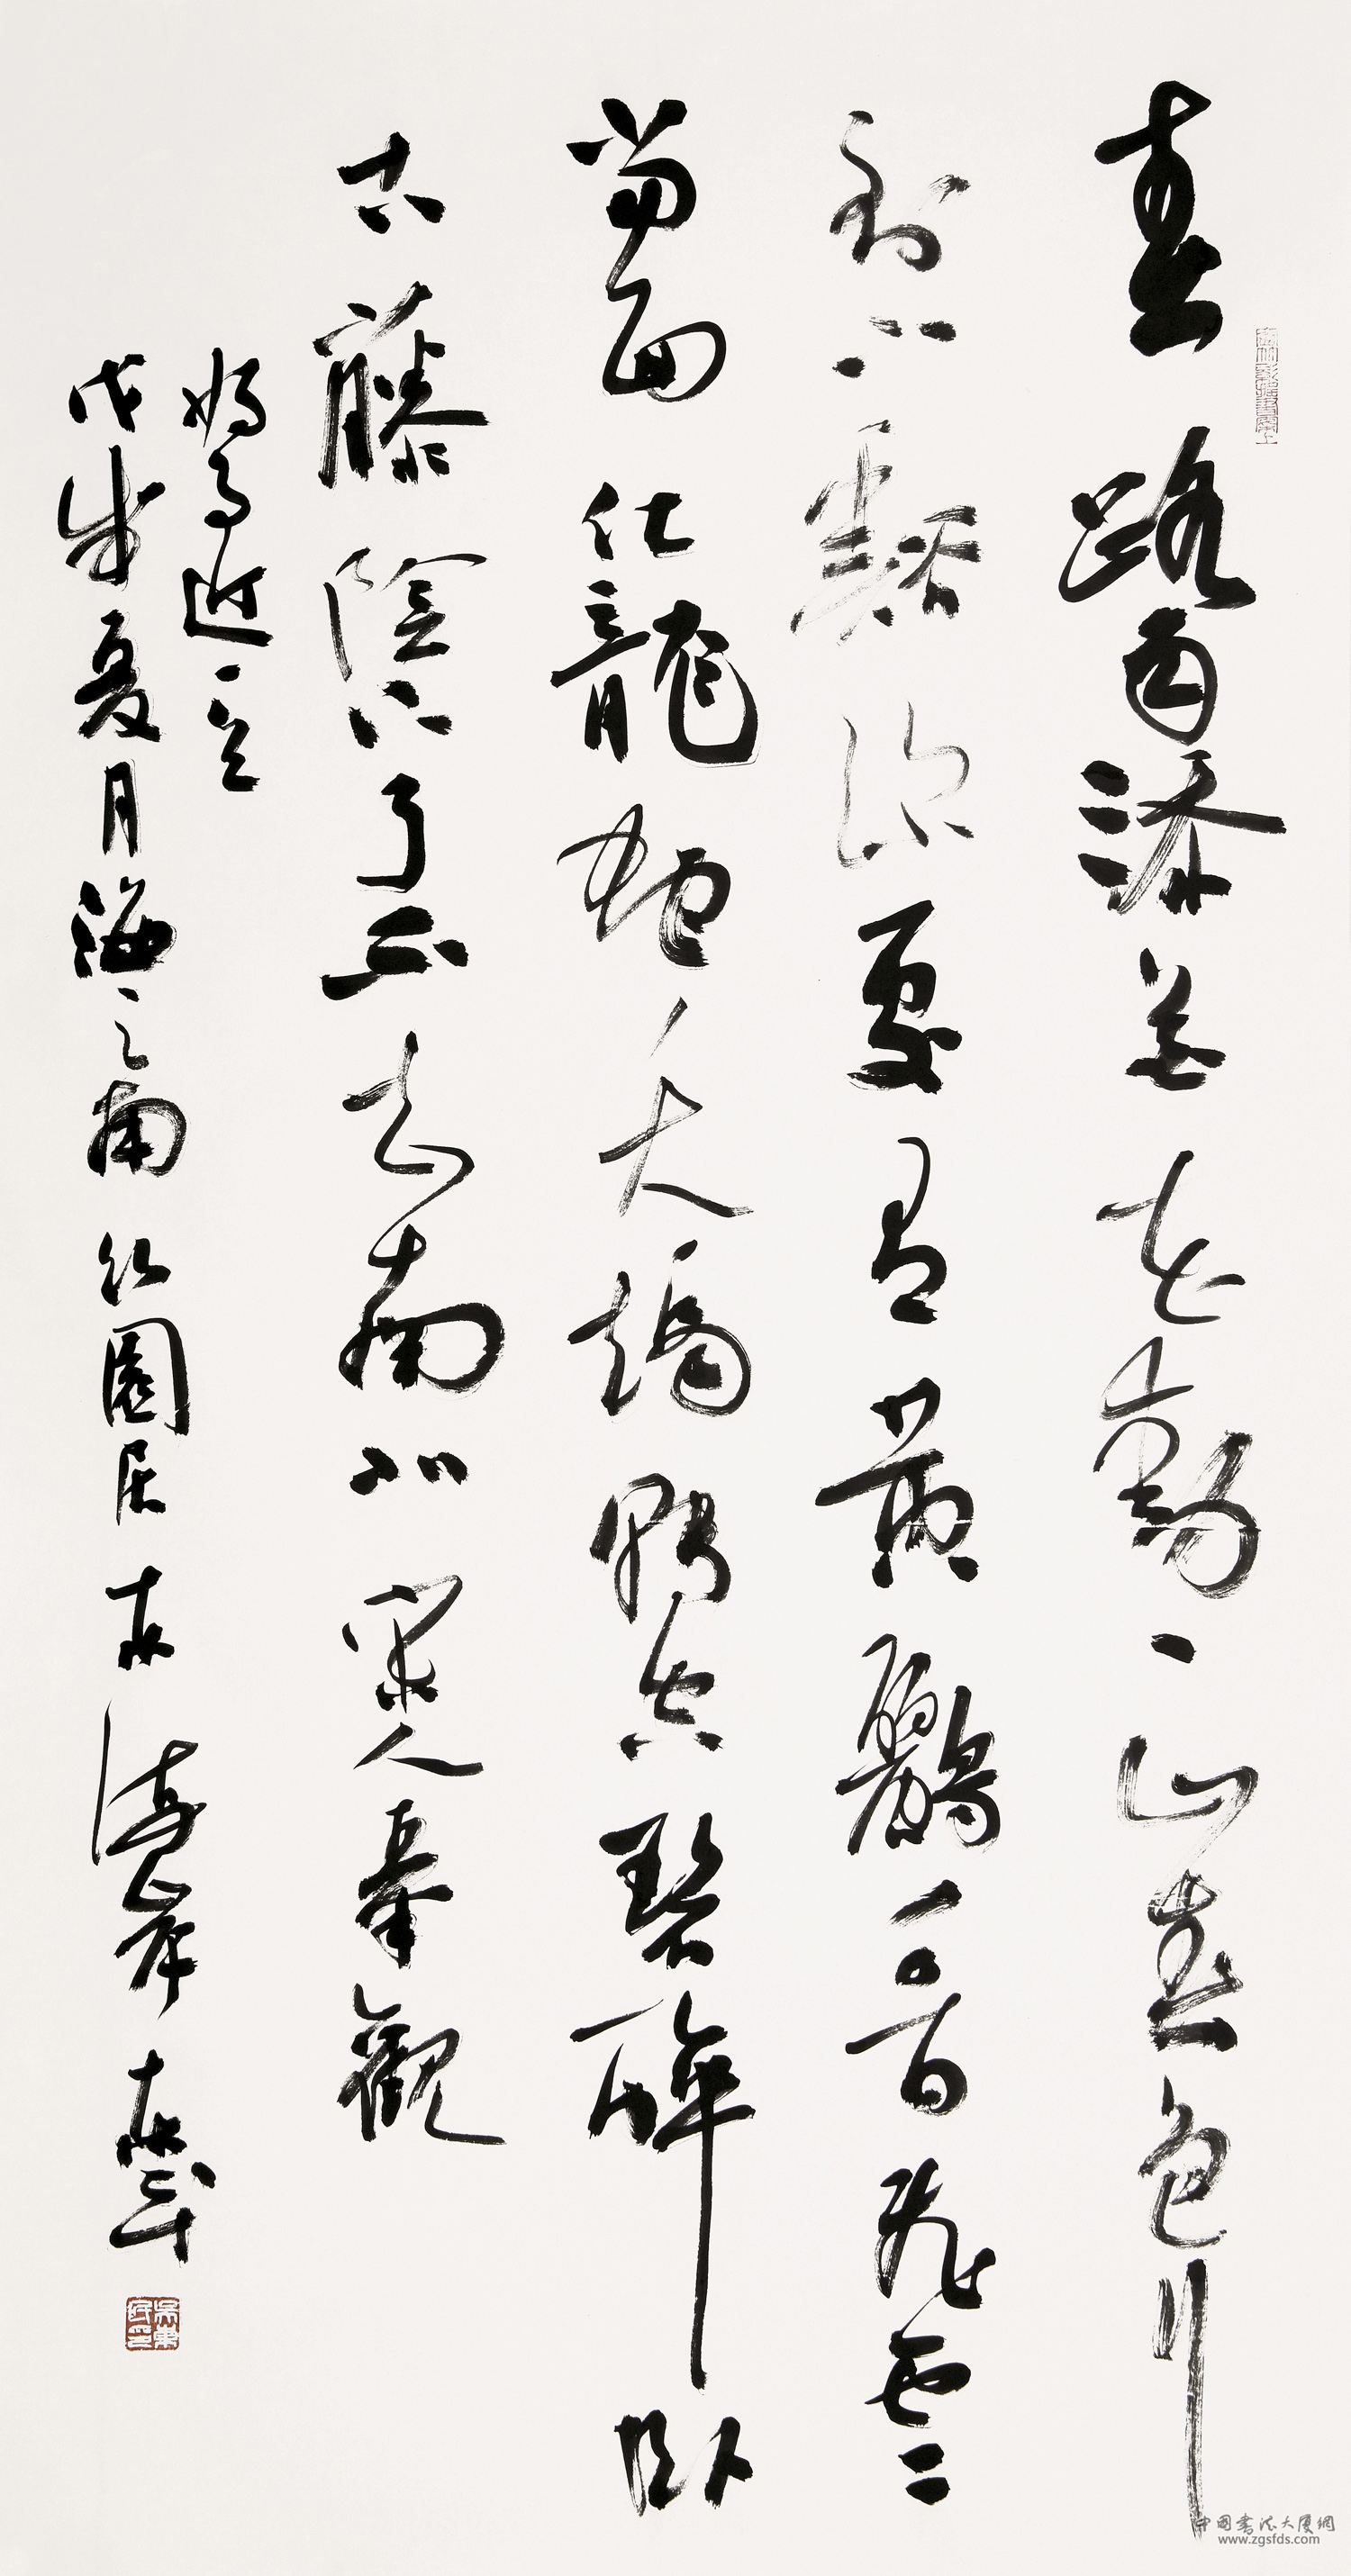 春路雨添花花動一山春色行
到小谿深處有黃鸝千百飛雲
當面化龍蛇夭矯轉空碧醉臥
古藤陰下了不知南北宋人秦觀
好事近
戊戌夏月海之南園居岸東民
吳東民印
中國書法大廈網
www.zgsfds.com